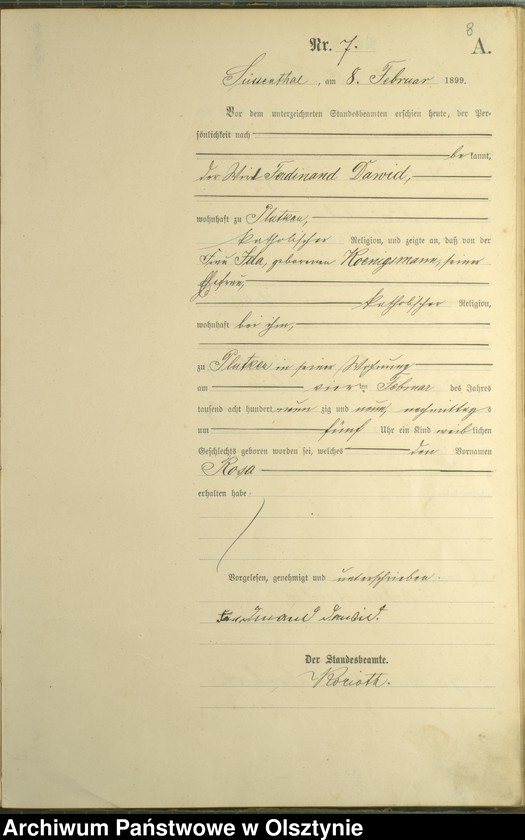 8
Nr. 7. A.
Süssenthal, am 8. Februar 1899.
Vor dem unterzeichneten Standesbeamten erschien heute, der Per-
sönlichkeit nach
bekannt,
der Wirt Ferdinand Dawid,
wohnhaft zu Plutken,
katholischer Religion, und zeigte an, daß von der
Frau Ida, geborenen Koenigsmann, seiner
Ehefrau,
katholischer Religion,
wohnhaft bei ihm,
zu Plutken in seiner Wohnung
am vierten Februar des Jahres
tausend acht hundert neunzig und neun, nachmittags
um fünf Uhr ein Kind weiblichen
Geschlechts geboren worden sei, welches den Vornamen
Rosa
erhalten habe.
Vorgelesen, genehmigt und unterschrieben.
Ferdinand Dawid.
Der Standesbeamte.
Archiwum Państwowe w Olsztynie